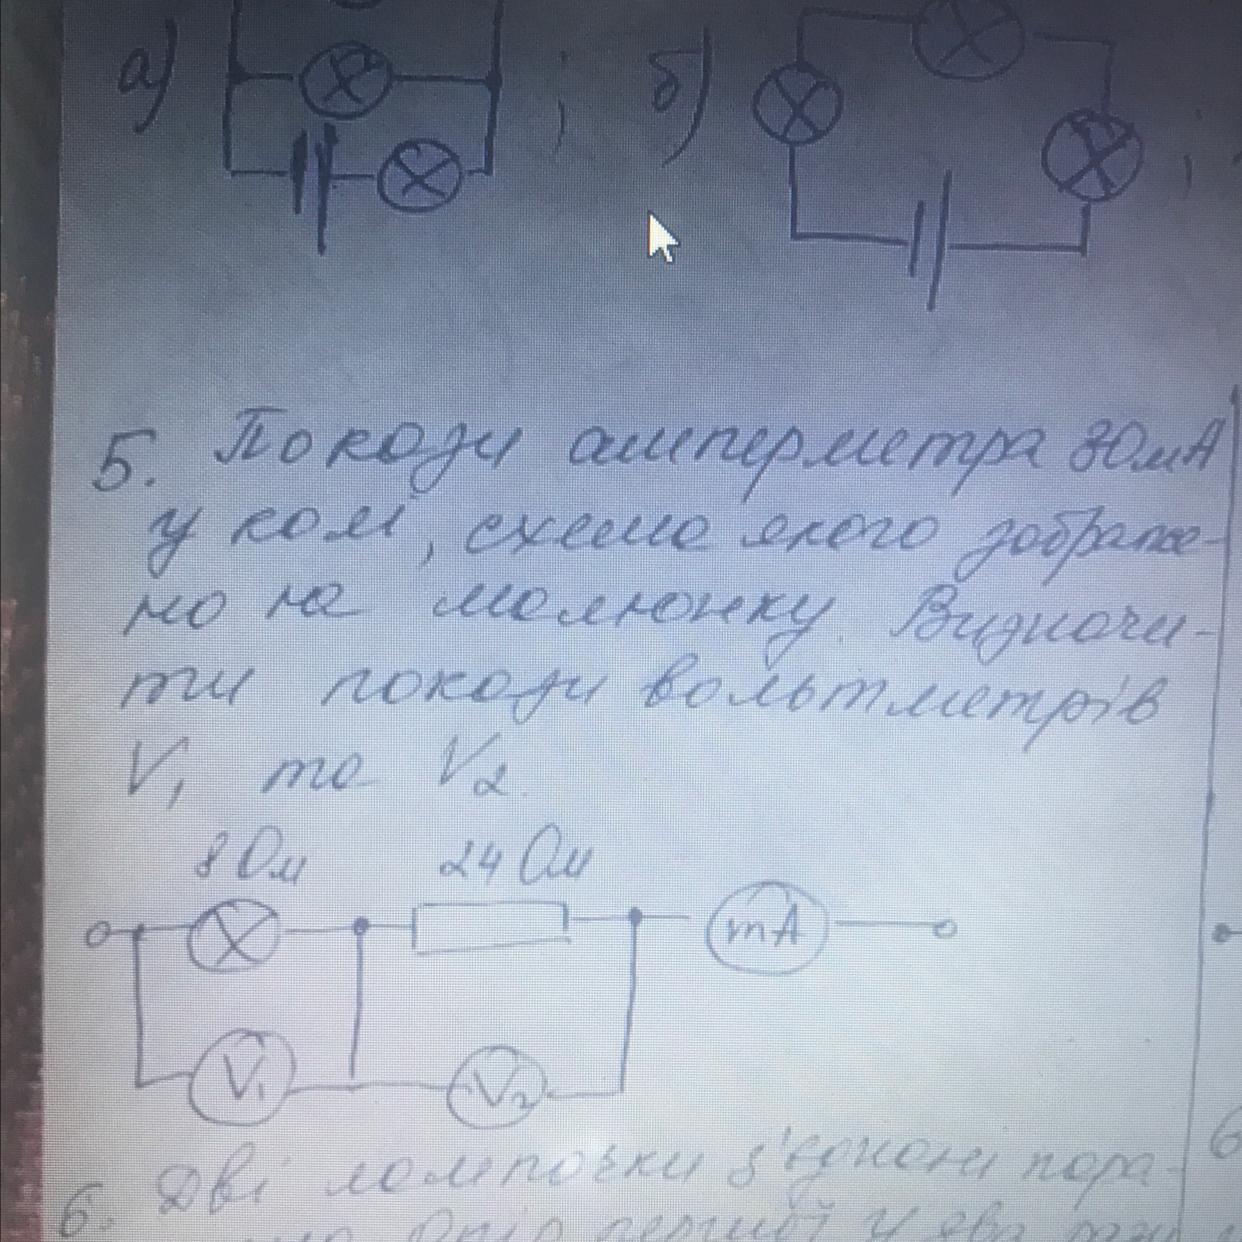 а) ; б) ;
5. Покази амперметра 30мА
у колі, схема якого зображе-
но на малюнку. Визначи-
ти покази вольтметрів
V1 та V2.
8 Ом 24 Ом
mA
V1 V2
6. Дві лампочки з'єднані пара-